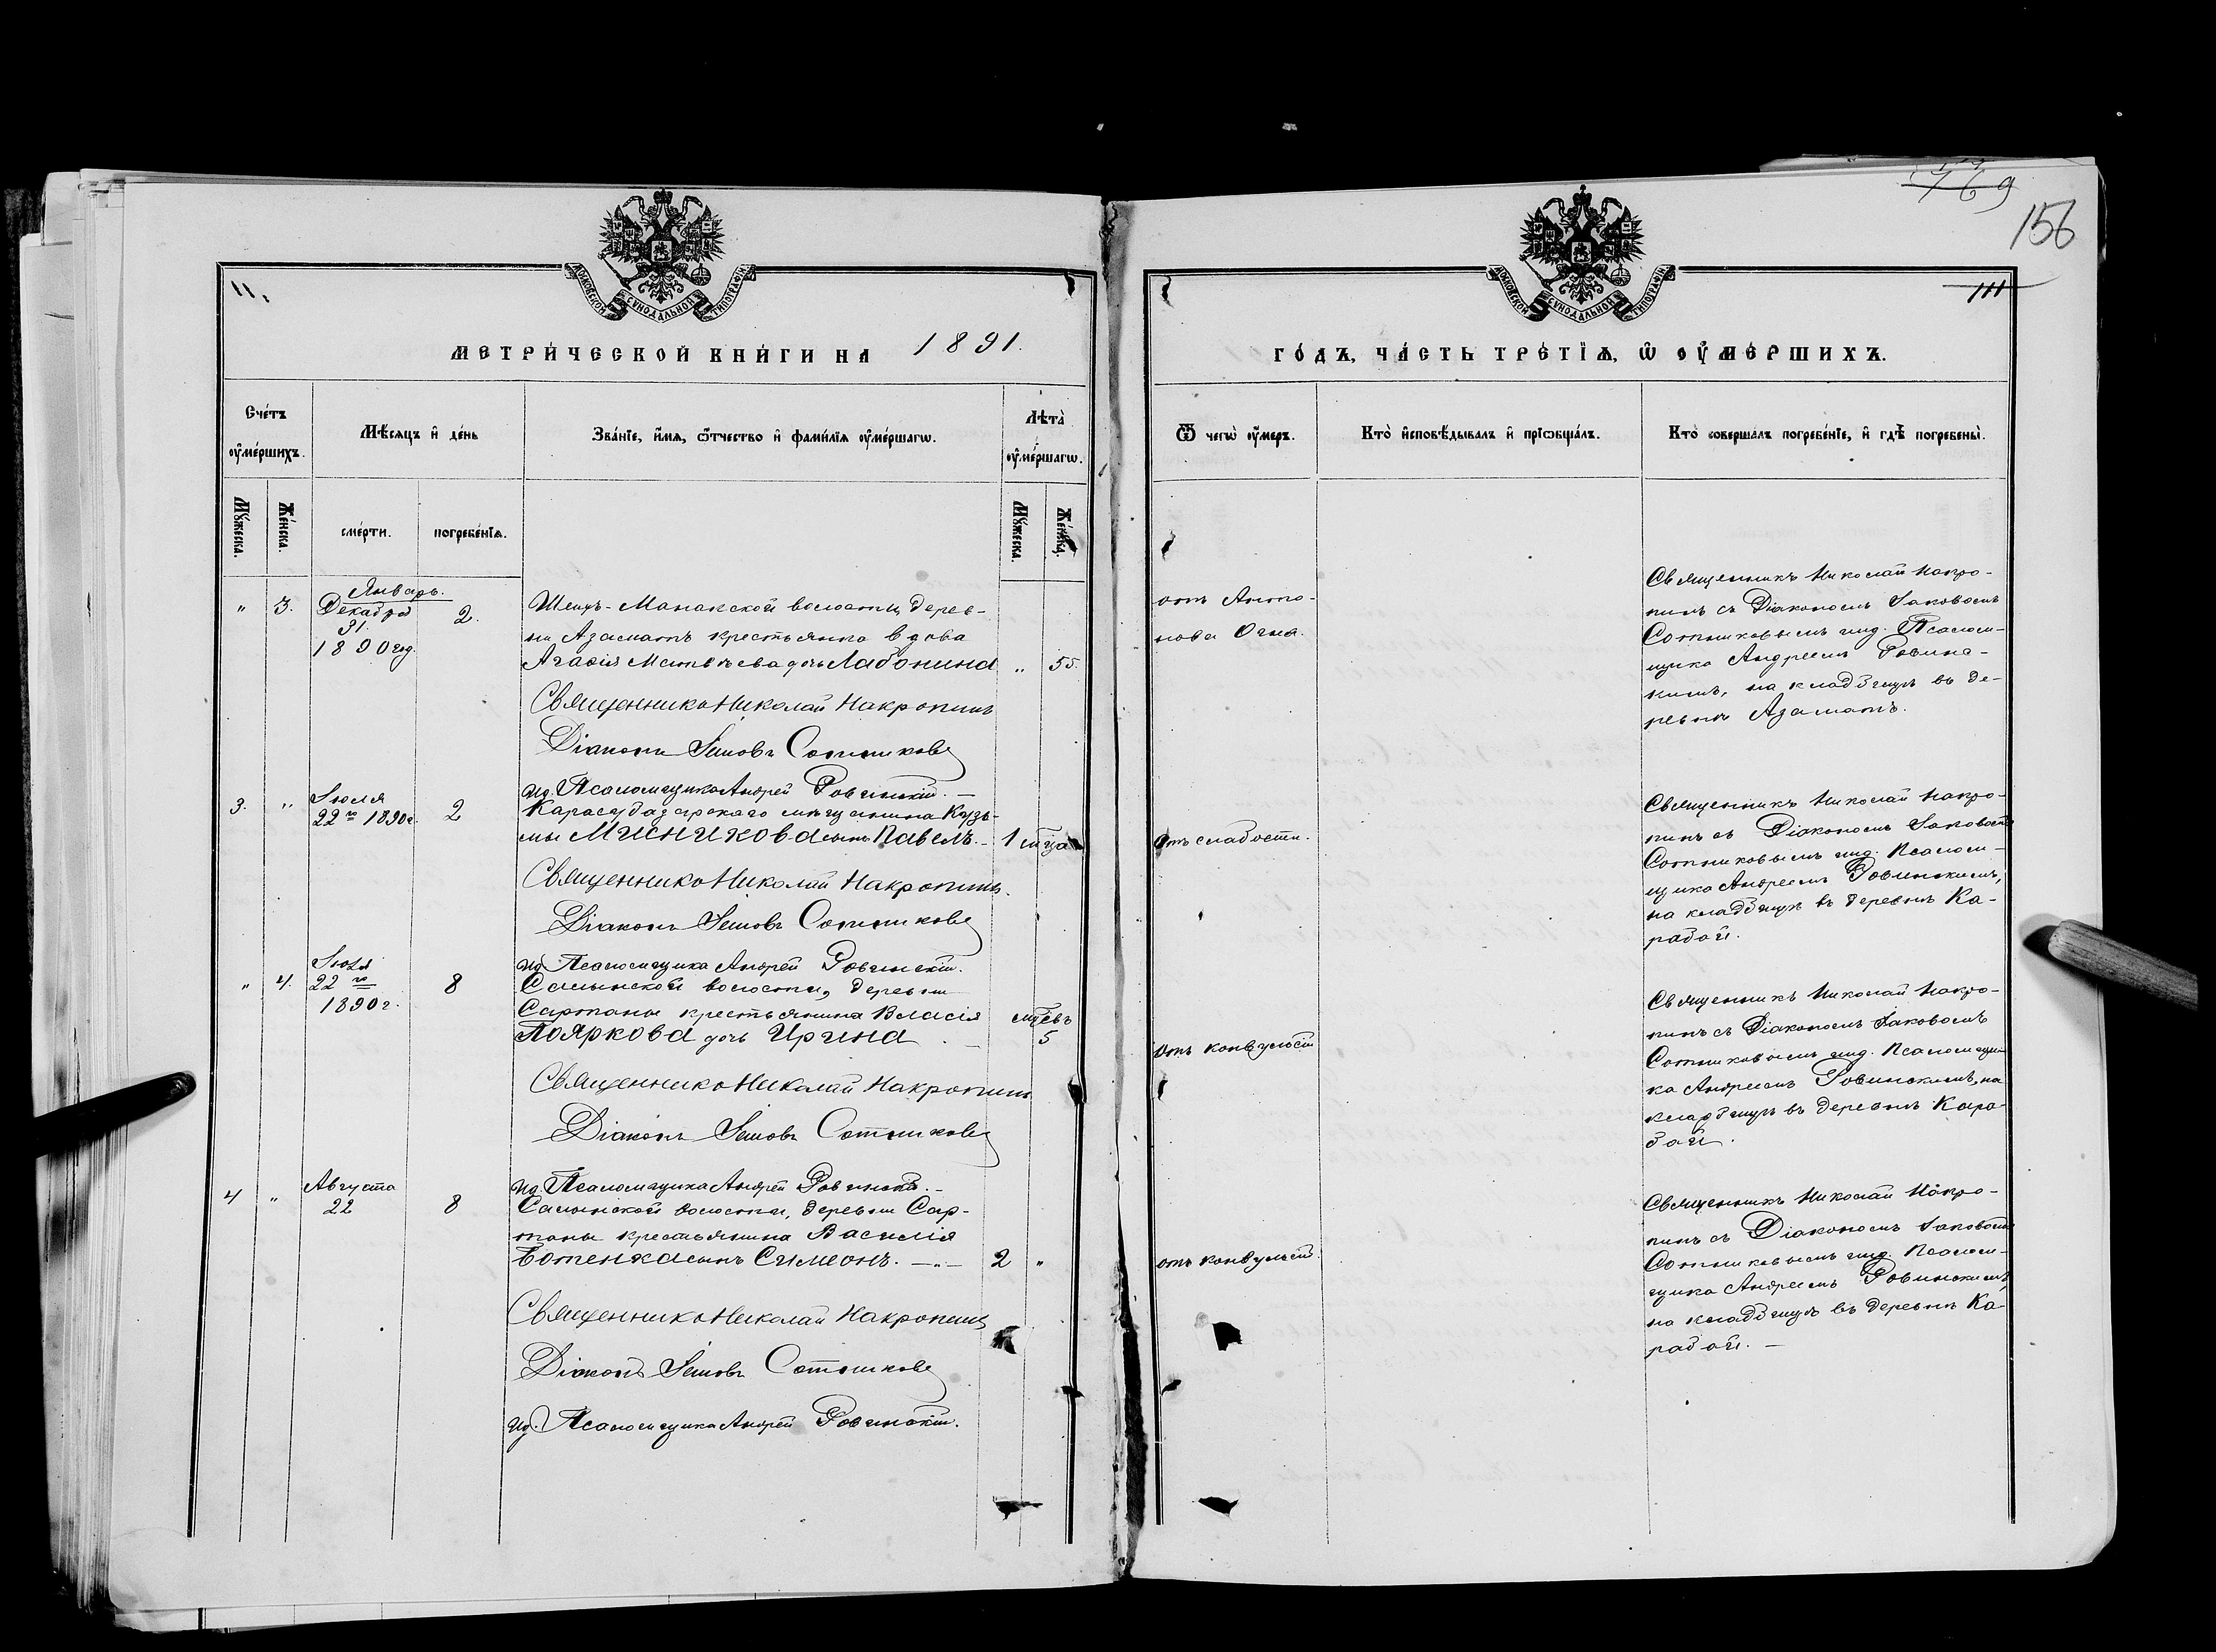 769
156
11.
111
МОСКОВСКОЙ СѴНОДАЛЬНОЙ ТИПОГРАФІИ
МОСКОВСКОЙ СѴНОДАЛЬНОЙ ТИПОГРАФІИ
МЕТРИ́ЧЕСКОЙ КНИ́ГИ НА 1891.
Сче́тъ ᲂу҆ме́ршихъ.
Мѣ́сяцъ и҆ де́нь
Зва́нїе, и҆́мѧ, ѻ҆́тчество и҆ фами́лїѧ ᲂу҆ме́ршагѡ.
Лѣта̀ ᲂу҆ме́ршагѡ.
Мꙋ́жеска.
Же́нска.
сме́рти.
погребе́нїѧ.
Мꙋ́жеска.
Же́нска.
„ 3.
Январь.
Декабря
31.
1890 год.
2.
Шейхъ-Монакской волости, дерев-
ни Азаматъ крестьянка вдова
Агафія Матвѣева дочь Лабонина „ 55.
Священникъ Николай Накропинъ
Діаконъ Іаковъ Сотниковъ
ид. Псаломщика Андрей Ровинскій.
3. „
Іюля
22го 1890 г.
2
Карасубазарскаго мѣщанина Кузь-
мы Мисникова сынъ Павелъ. – 1 м-ца
Священникъ Николай Накропинъ.
Діаконъ Іаковъ Сотниковъ
ид. Псаломщика Андрей Ровинскій.
„ 4.
Іюля
22го
1890 г.
8
Салынской волости, деревни
Сартаны крестьянина Власія
Пояркова дочь Ирина. –
м-цевъ
5
Священникъ Николай Накропинъ
Діаконъ Іаковъ Сотниковъ
ид. Псаломщика Андрей Ровинскій. –
4 „
Августа
22
8
Салынской волости, деревни Сар-
таны крестьянина Василія
Котенка сынъ Симеонъ. – „ – 2 „
Священникъ Николай Накропинъ
Діаконъ Іаковъ Сотниковъ
ид. Псаломщика Андрей Ровинскій.
ГО́ДЪ, ЧА́СТЬ ТРЕ́ТЇѦ, Ѡ҆ ᲂУ҆МЕ́РШИХЪ.
Ѿ чегѡ̀ ᲂу҆́меръ.
Кто̀ и҆сповѣ́дывалъ и҆ прїѡбща́лъ.
Кто̀ соверша́лъ погребе́нїе, и҆ гдѣ̀ погребены̀.
отъ Анто-
нова Огня.
Священникъ Николай Накро-
пинъ съ Діакономъ Іаковомъ
Сотниковымъ и ид. Псалом-
щика Андреемъ Ровинс-
кимъ, на кладбищѣ въ де-
ревнѣ Азаматъ.
отъ слабости.
Священникъ Николай Накро-
пинъ съ Діакономъ Іаковомъ
Сотниковымъ и ид. Псалом-
щика Андреемъ Ровинскимъ,
на кладбищѣ въ деревнѣ Ка-
рабай.
отъ конвульсіи
Священникъ Николай Накро-
пинъ съ Діакономъ Іаковомъ
Сотниковымъ и ид. Псаломщи-
ка Андреемъ Ровинскимъ, на
кладбищѣ въ деревнѣ Кара-
бай.
отъ конвульсіи.
Священникъ Николай Накро-
пинъ съ Діакономъ Іаковомъ
Сотниковымъ и ид. Псалом-
щика Андреемъ Ровинскимъ,
на кладбищѣ въ деревнѣ Ка-
рабай. –